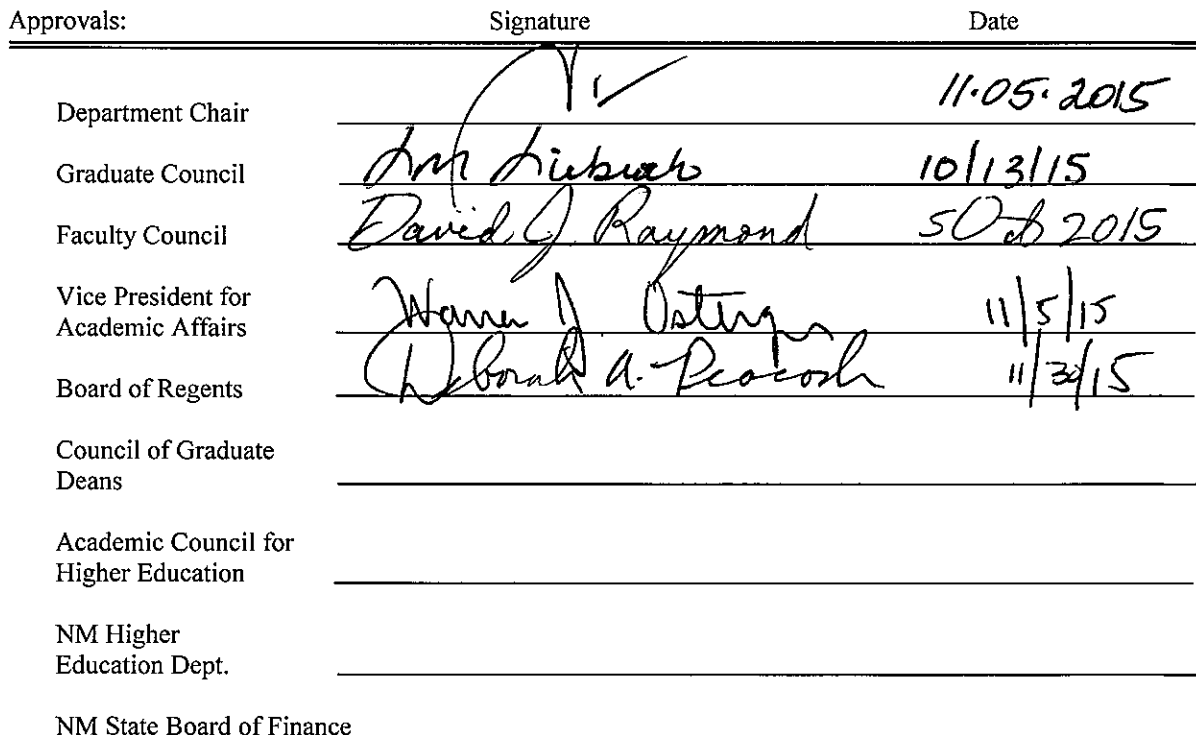 Approvals: Signature Date
Department Chair 11.05.2015
Graduate Council 10/13/15
Faculty Council David J. Raymond 5 Oct 2015
Vice President for
Academic Affairs 11/5/15
Board of Regents Deborah A. Peacock 11/30/15
Council of Graduate
Deans
Academic Council for
Higher Education
NM Higher
Education Dept.
NM State Board of Finance